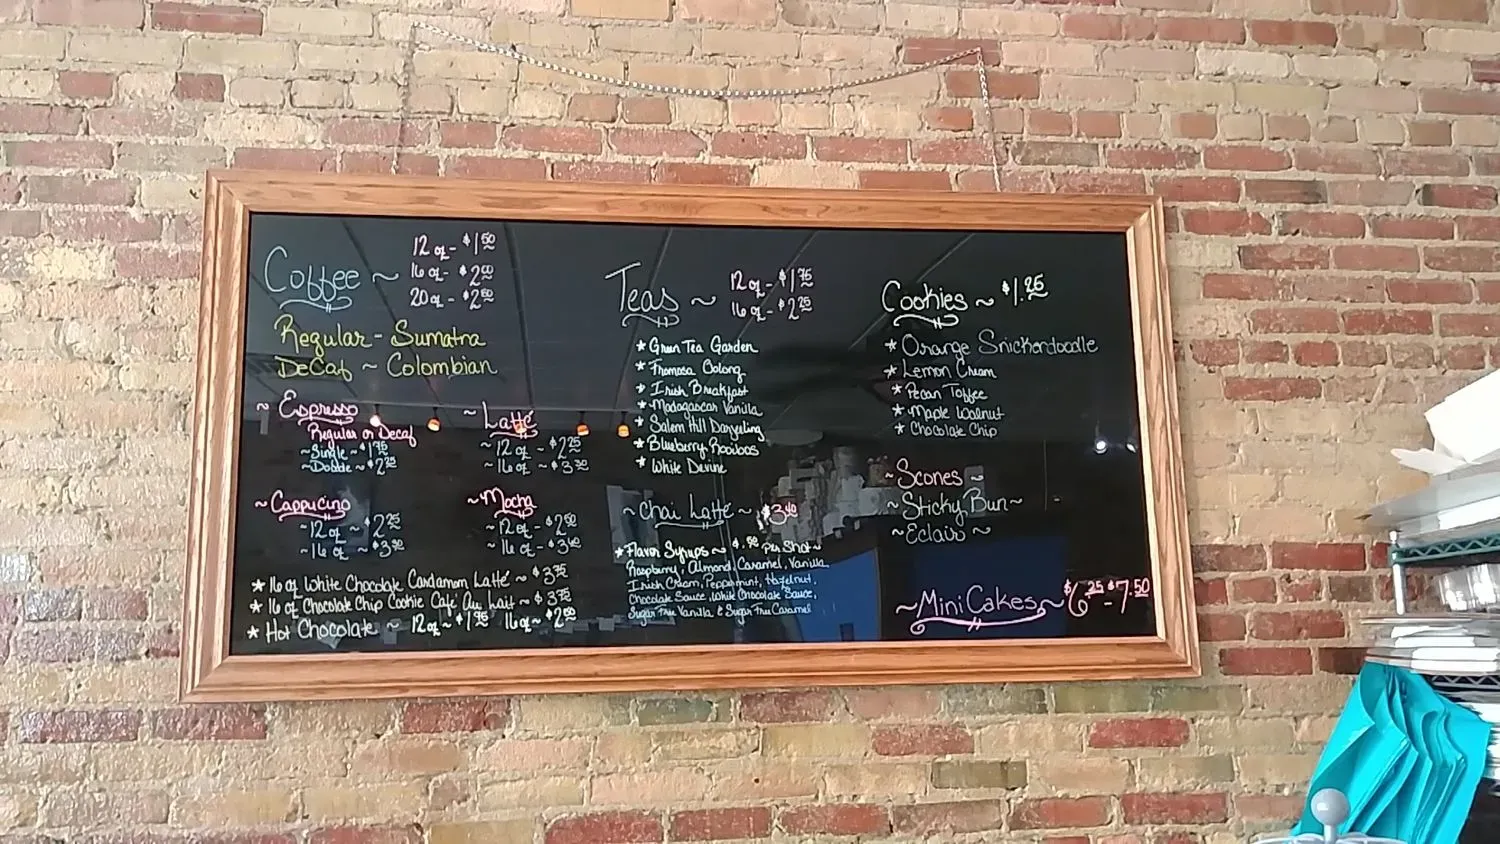 Coffee ~ 12 oz - $1.50
16 oz - $2.00
20 oz - $2.50
Regular - Sumatra
Decaf ~ Colombian
~ Espresso
Regular or Decaf
~ Single ~ $1.75
~ Double ~ $2.25
~ Latté
~ 12 oz - $2.75
~ 16 oz ~ $3.30
~ Cappucino
~ 12 oz ~ $2.75
~ 16 oz ~ $3.30
~ Mocha
~ 12 oz - $2.90
~ 16 oz - $3.40
* 16 oz White Chocolate Cardamom Latté ~ $3.75
* 16 oz Chocolate Chip Cookie Café Au Lait ~ $3.75
* Hot Chocolate ~ 12 oz ~ $1.75 16 oz ~ $2.50
Teas ~ 12 oz - $1.75
16 oz - $2.25
* Green Tea Garden
* Fromosa Oolong
* Irish Breakfast
* Madagascar Vanilla
* Salem Hill Darjeeling
* Blueberry Rooibos
* White Devine
~ Chai Latté ~ $3.40
* Flavor Syrups ~ $.50 per Shot ~
Raspberry, Almond, Caramel, Vanilla
Irish Cream, Peppermint, Hazelnut,
Chocolate Sauce, White Chocolate Sauce,
Sugar Free Vanilla, & Sugar Free Caramel
Cookies ~ $1.25
* Orange Snickerdoodle
* Lemon Cream
* Pecan Toffee
* Maple Walnut
* Chocolate Chip
~ Scones ~
~ Sticky Bun ~
~ Eclair ~
~ Mini Cakes ~ $6.25 - $7.50